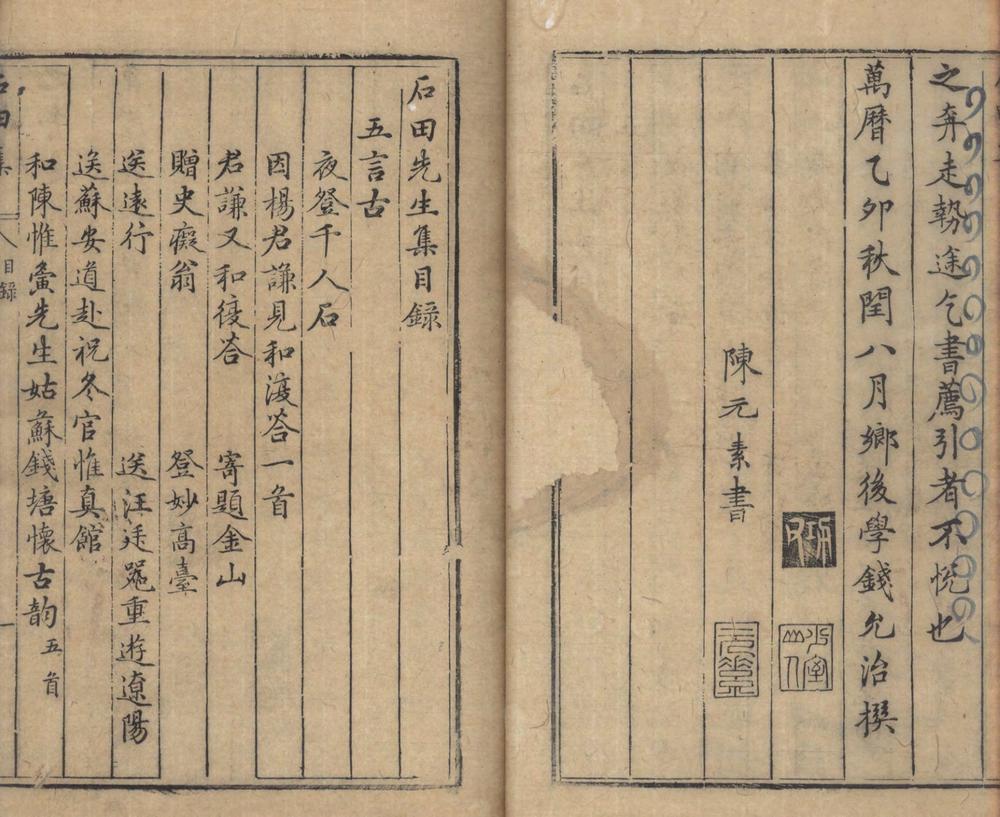 之奔走勢途乞書薦引者不悅也
萬曆乙卯秋閏八月鄉後學錢允治撰
陳元素書
石田先生集目錄
五言古
夜登千人石
因楊君謙見和渡答一首
君謙又和復答 寄題金山
贈史癡翁 登妙高臺
送遠行 送汪廷器重遊遼陽
送蘇安道赴祝冬官惟真館
和陳惟寅先生姑蘇錢塘懷古韵五首
石田集
目錄
一